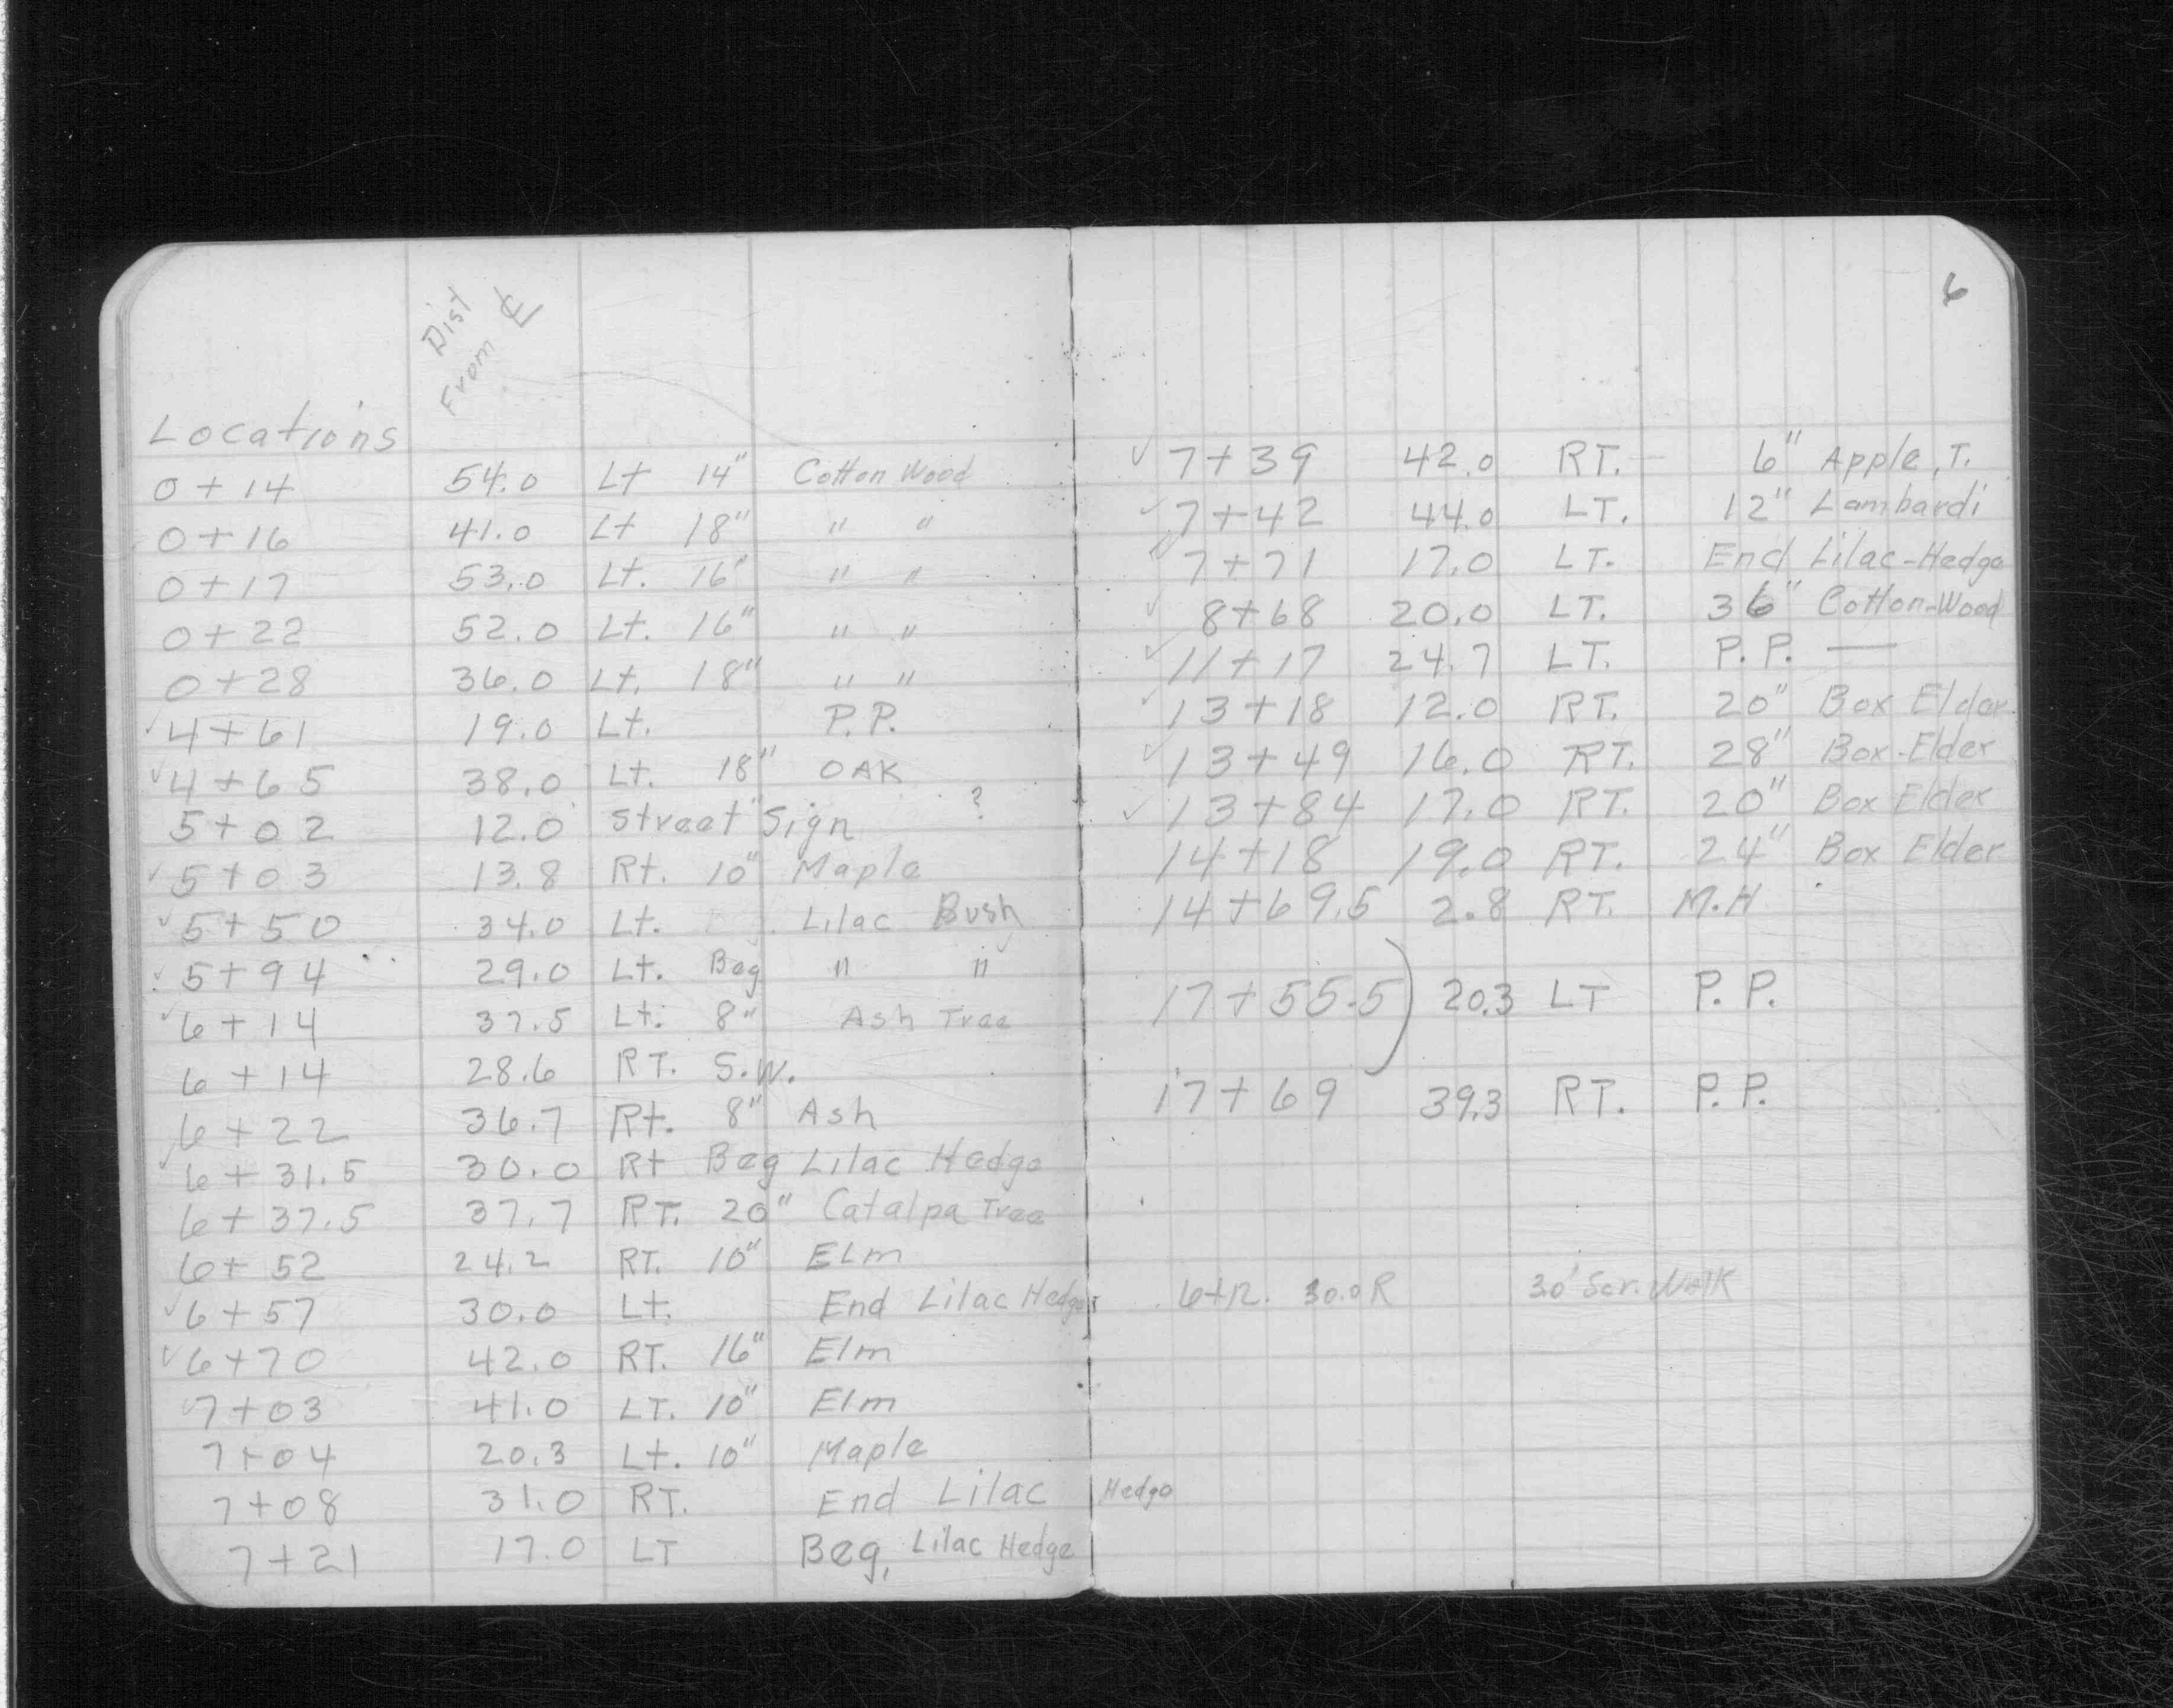 Dist
From ℄
Locations
0+14 54.0 Lt 14" Cotton Wood
0+16 41.0 Lt 18" " "
0+17 53.0 Lt. 16" " "
0+22 52.0 Lt. 16" " "
0+28 36.0 Lt. 18" " "
✓ 4+61 19.0 Lt. P.P.
✓ 4+65 38.0 Lt. 18" OAK
5+02 12.0 Street Sign ?
✓ 5+03 13.8 Rt. 10" Maple
✓ 5+50 34.0 Lt. Lilac Bush
✓ 5+94 29.0 Lt. Beg " "
✓ 6+14 37.5 Lt. 8" Ash Tree
6+14 28.6 RT. S.W.
6+22 36.7 Rt. 8" Ash
✓ 6+31.5 30.0 Rt Beg Lilac Hedge
6+37.5 37.7 RT. 20" Catalpa Tree
6+52 24.2 RT. 10" ELm
✓ 6+57 30.0 Lt. End Lilac Hedge
✓ 6+70 42.0 RT. 16" Elm
✓ 7+03 41.0 LT. 10" Elm
7+04 20.3 Lt. 10" Maple
7+08 31.0 RT. End Lilac Hedge
7+21 17.0 LT Beg, Lilac Hedge
6
✓ 7+39 42.0 RT. 6" Apple, T.
✓ 7+42 44.0 LT. 12" Lambardi
✓ 7+71 17.0 LT. End Lilac-Hedge
✓ 8+68 20.0 LT. 36" Cotton-Wood
✓ 11+17 24.7 LT. P.P. —
✓ 13+18 12.0 RT. 20" Box Elder
✓ 13+49 16.0 RT. 28" Box-Elder
✓ 13+84 17.0 RT. 20" Box Elder
14+18 19.0 RT. 24" Box Elder
14+69.5 2.8 RT. M.H
17+55.5) 20.3 LT P.P.
17+69 39.3 RT. P.P.
6+12. 30.0 R 3.0' Scr. Walk